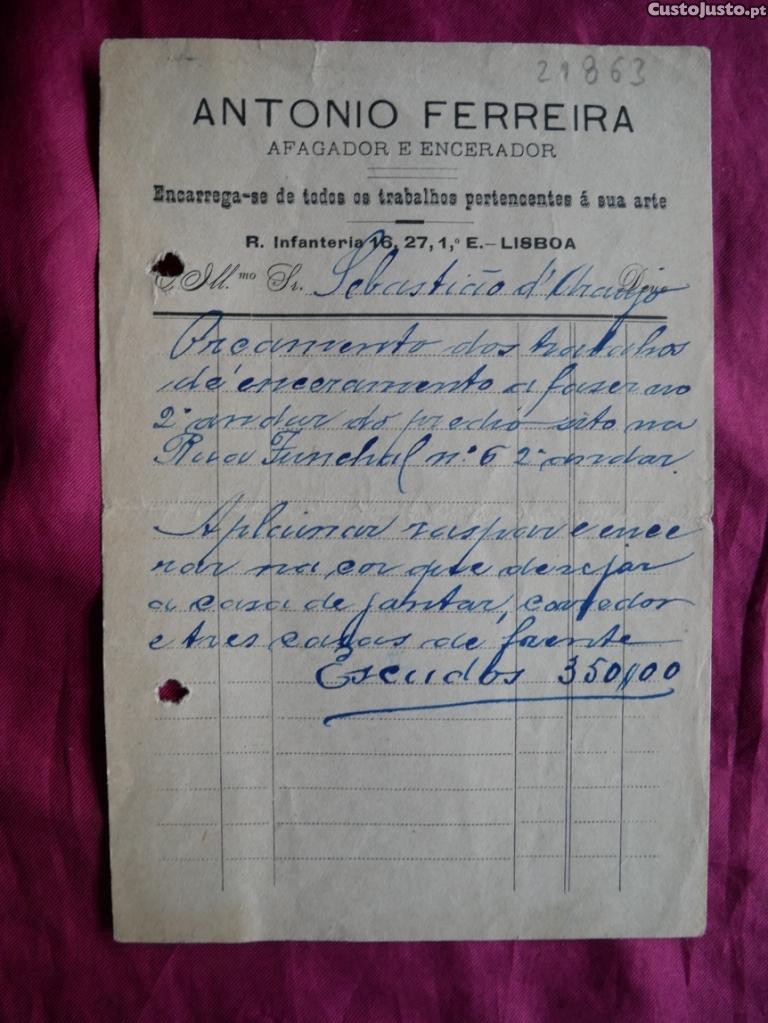 CustoJusto.pt
21863
ANTONIO FERREIRA
AFAGADOR E ENCERADOR
Encarrega-se de todos os trabalhos pertencentes á sua arte
R. Infanteria 16, 27, 1,º E.—LISBOA
Ill.mo Sr. Sebastião d'Araujo Deve
Orcamento dos trabalhos
de enceramento a faser no
2º andar do predio sito na
Rua Funchal nº 6 2º andar.
Aplainar raspar e ence
rar na cor que desejar
a casa de jantar, corredor
e tres casas de frente
Escudos 350,00